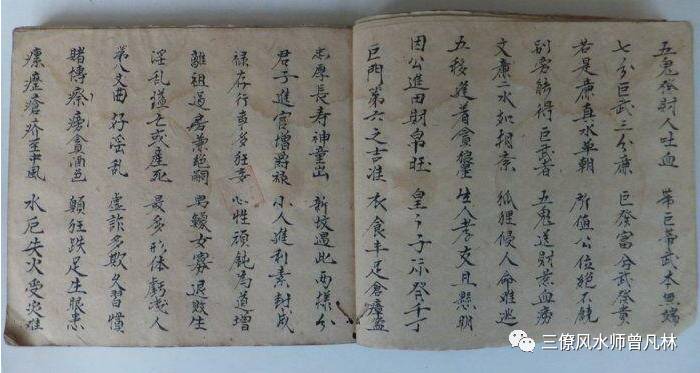 五鬼發財人吐血 帶巨帶武本無端
七分巨武三分廉 巨發富分武發貴
若是廉真水单朝 所值公位絕不饒
别旁轉得巨武者 五鬼送財兼血痨
文廉二水如朝來 狐狸侵人命难逃
五移進着貪狼 生人孝友且
因公進田財帛旺 皇々子孫發千丁
巨門第六之吉准 衣食丰足倉盈
忠厚長寿神童出 新坟遇此兩樣分
君子進官增爵禄 小人進利素封成
禄存行事多狂妄 心性頑鈍為道增
離祖過房兼絕嗣 男鰥女寡退敗生
淫乱亡或產死 最多形体虧殘人
第八文曲好淫乱 虛詐多欺久習慣
賭博痨貪酒色 顛狂跌足生眼患
瘡疥至中風 水厄失火受災难
三僚风水师曾凡林